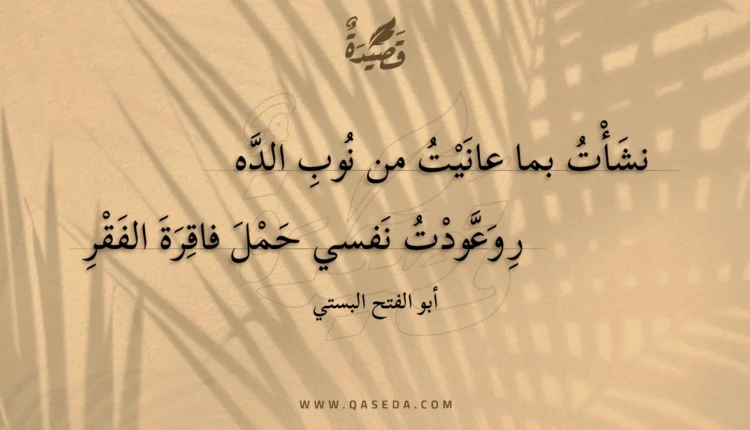 قَصِيدَةٌ
نشَأْتُ بما عانَيْتُ من نُوبِ الدَّه
رِ وَعَّودْتُ نَفسي حَمْلَ فاقِرَةَ الفَقْرِ
أبو الفتح البستي
WWW.QASEDA.COM